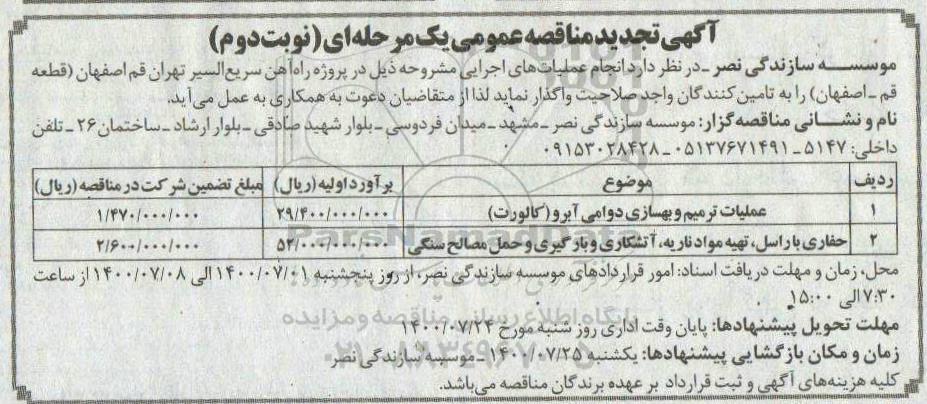 آگهی تجدید مناقصه عمومی یک مرحله‌ای (نوبت دوم)
موسسه سازندگی نصر ـ در نظر دارد انجام عملیات‌های اجرایی مشروحه ذیل در پروژه راه‌آهن سریع‌السیر تهران قم اصفهان (قطعه
قم ـ اصفهان) را به تامین‌کنندگان واجد صلاحیت واگذار نماید لذا از متقاضیان دعوت به همکاری به عمل می‌آید.
نام و نشانی مناقصه‌گزار: موسسه سازندگی نصر ـ مشهد ـ میدان فردوسی ـ بلوار شهید صادقی ـ بلوار ارشاد ـ ساختمان ۲۶ ـ تلفن
داخلی: ۵۱۴۷ ـ ۰۵۱۳۷۶۷۱۴۹۱ ـ ۰۹۱۵۳۰۲۸۴۲۸
ردیف موضوع برآورد اولیه (ریال) مبلغ تضمین شرکت در مناقصه (ریال)
۱ عملیات ترمیم و بهسازی دوامی آبرو (کالورت) ۲۹/۴۰۰/۰۰۰/۰۰۰ ۱/۴۷۰/۰۰۰/۰۰۰
۲ حفاری با راسل، تهیه مواد ناریه، آتشکاری و بارگیری و حمل مصالح سنگی ۵۲/۰۰۰/۰۰۰/۰۰۰ ۲/۶۰۰/۰۰۰/۰۰۰
محل، زمان و مهلت دریافت اسناد: امور قراردادهای موسسه سازندگی نصر، از روز پنجشنبه ۱۴۰۰/۰۷/۰۱ الی ۱۴۰۰/۰۷/۰۸ از ساعت
۷:۳۰ الی ۱۵:۰۰
مهلت تحویل پیشنهادها: پایان وقت اداری روز شنبه مورخ ۱۴۰۰/۰۷/۲۴
زمان و مکان بازگشایی پیشنهادها: یکشنبه ۱۴۰۰/۰۷/۲۵ ـ موسسه سازندگی نصر
کلیه هزینه‌های آگهی و ثبت قرارداد بر عهده برندگان مناقصه می‌باشد.
ParsNamadData
پایگاه اطلاع رسانی مناقصه و مزایده